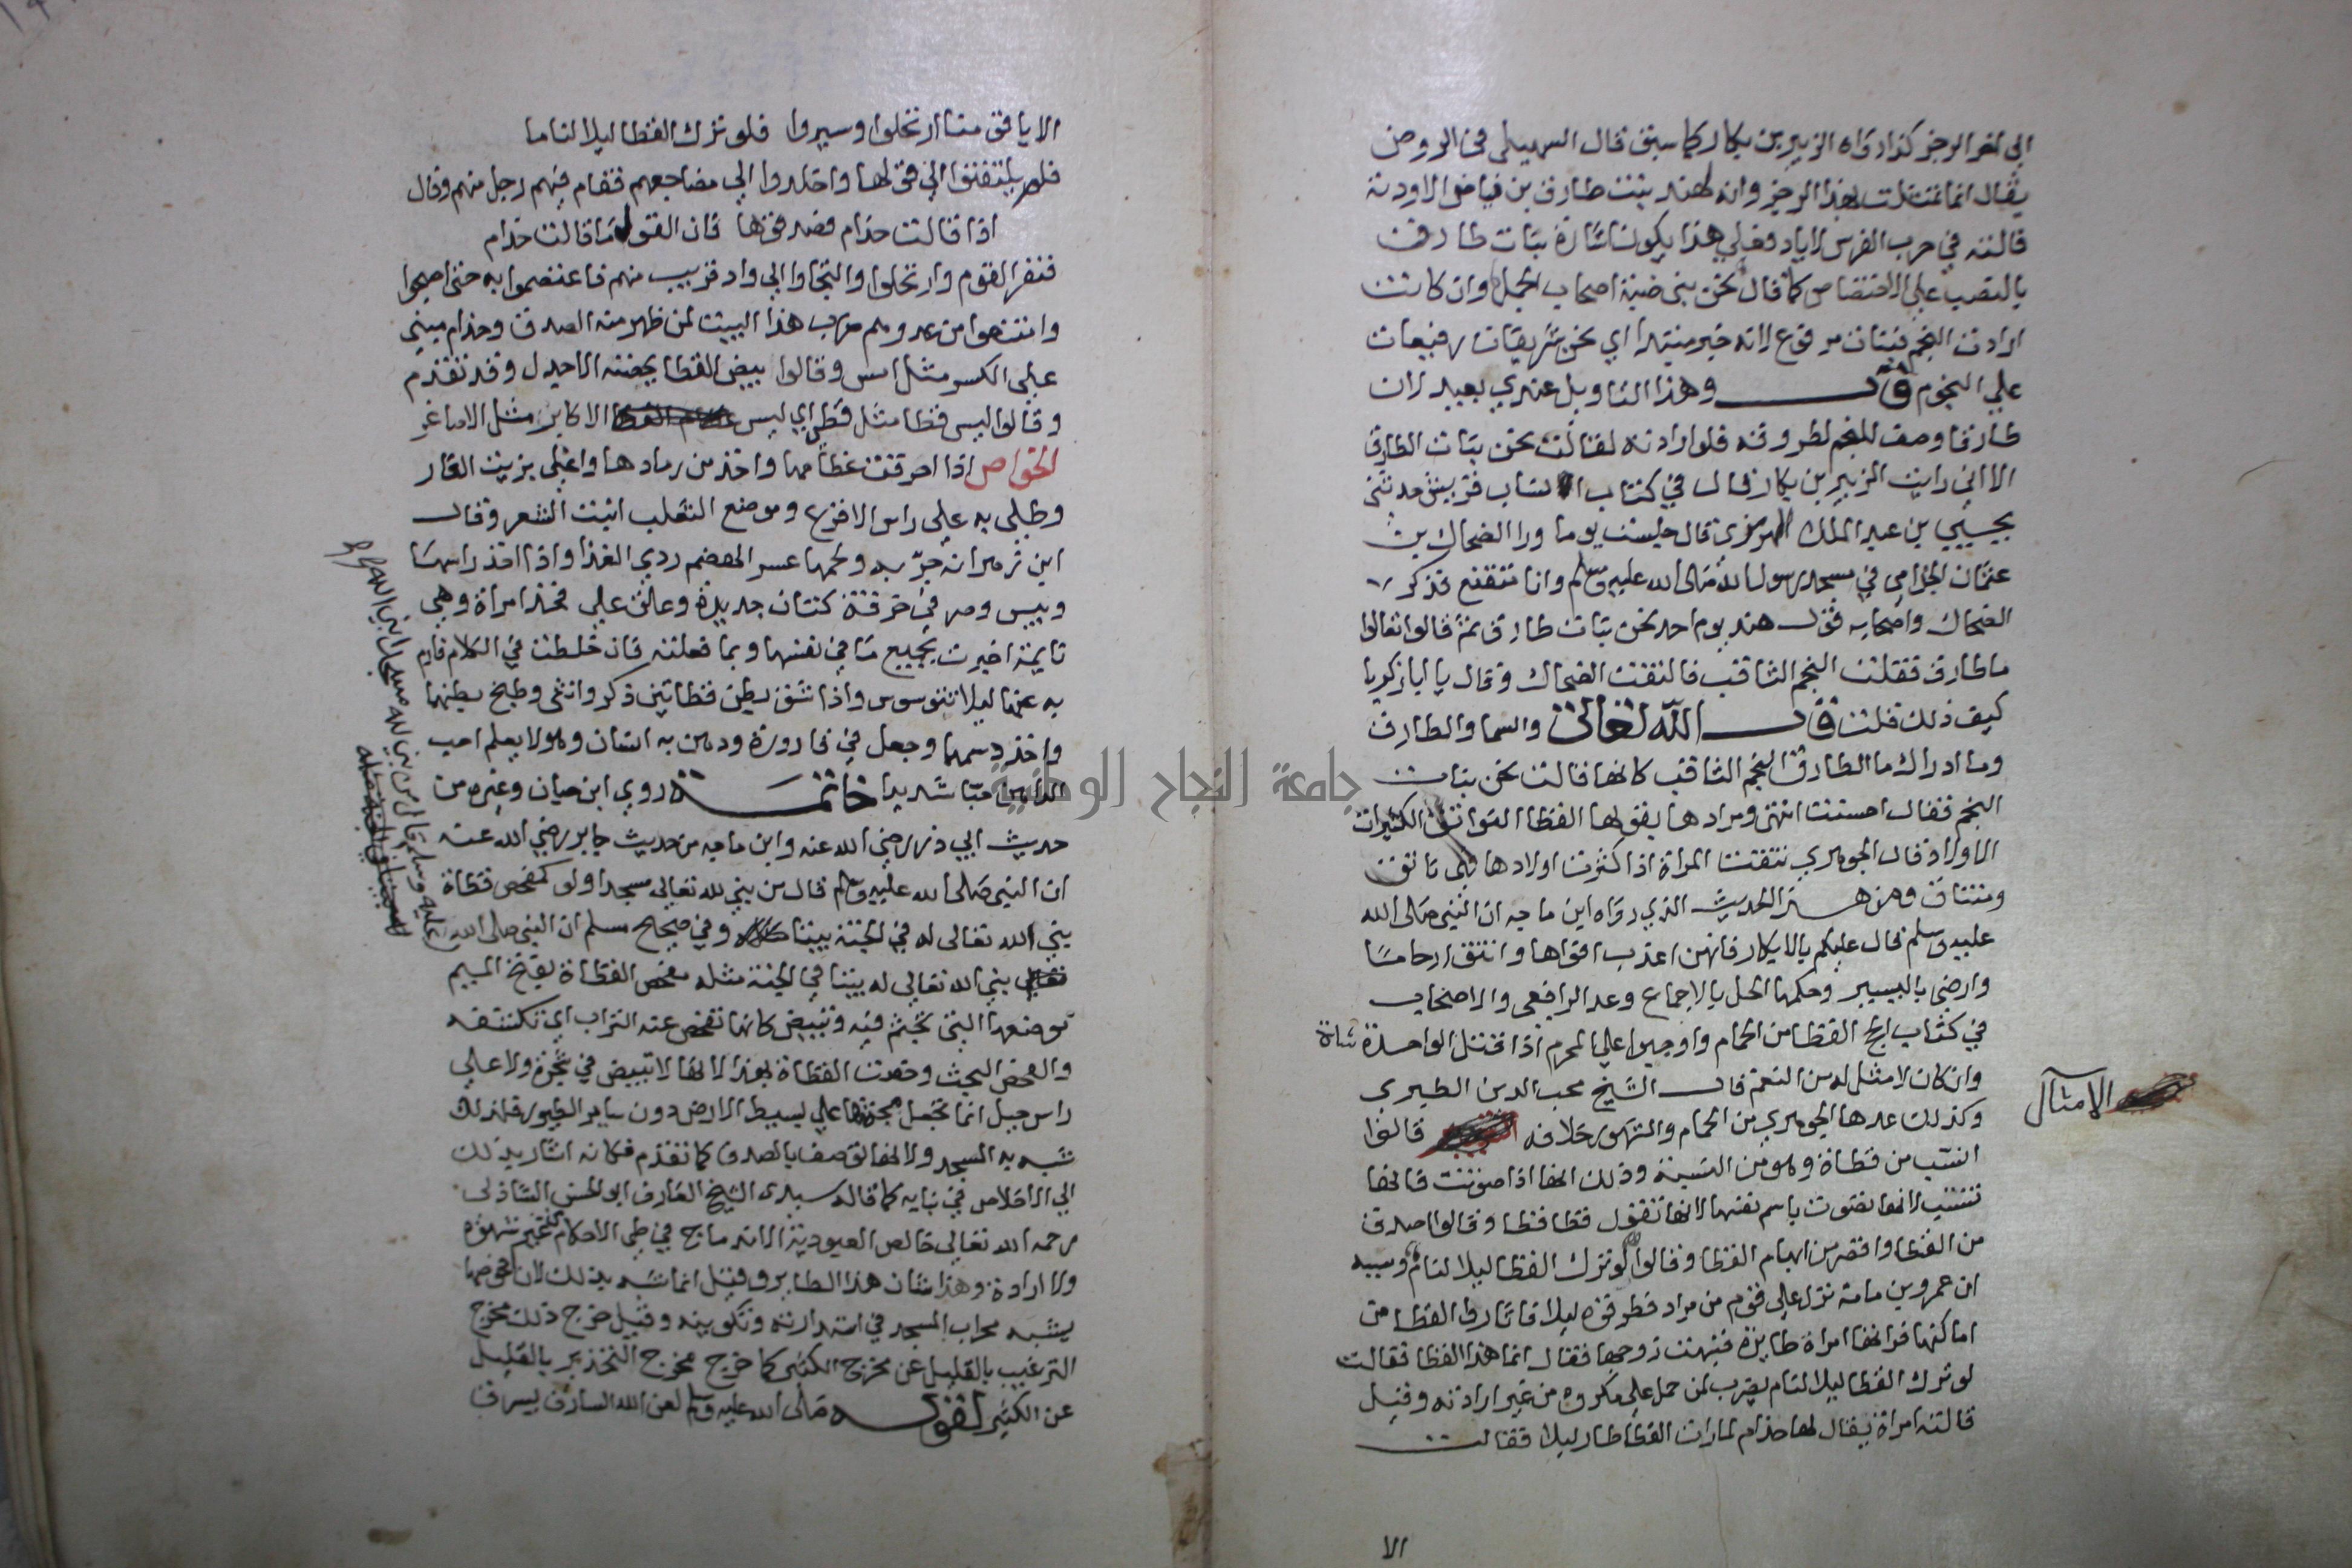 الي اخر الرجز كذا رواه الزبير بن بكار كما سبق قال السهيلي في الروض
يقال انما تمثلت بهذا الرجز وانه لهند بنت طارق بن فياض الاودية
قالته في حرب الفرس لاياد فعلي هذا يكون اشارة بنات طارق
بالنصب علي الاختصاص كما قال نحن بني ضبة اصحاب الجمل وان كانت
ارادت النجم فبنات مرفوع لانه خبر مبتدا اي نحن شريفات رفيعات
علي النجوم قال وهذا التاويل عندي بعيد لان
طارقا وصف للنجم لطروقه فلو ارادته لقالت نحن بنات الطارق
الا اني رايت الزبير بن بكار قال في كتاب انساب قريش حدثني
يحيي بن عبد الملك الهرموزي قال جلست يوما ورا الضحاك بن
عثمان الحزامي في مسجد رسول الله صلى الله عليه وسلم وانا متقنع فذكر
الضحاك واصحابه قول هند يوم احد نحن بنات طارق ثم قالوا تعالوا
ما طارق فقلت النجم الثاقب فالتفت الضحاك وقال يا ابا زكريا
كيف ذلك قلت قال الله تعالى والسما والطارق
وما ادراك ما الطارق النجم الثاقب كانها قالت نحن بنات
النجم فقال احسنت انتهى ومرادها بقولها القطا النواتق الكثيرات
الاولاد قال الجوهري نتقت المراة اذا كثرت اولادها فهي ناتق
ومنتاق ومن هذا الحديث الذي رواه ابن ماجه ان النبي صلى الله
عليه وسلم قال عليكم بالابكار فانهن اعذب افواها وانتق ارحاما
وارضى باليسير وحكمها الحل بالاجماع وعد الرافعي والاصحاب
في كتاب الحج القطا من الحمام واوجبوا علي المحرم اذا قتل الواحدة شاة
وان كان لا مثل له من النعم قال الشيخ محب الدين الطبري
وكذلك عدها الجوهري من الحمام والمشهور خلافه قالوا
الامثال
انسب من قطاة وهو من النسبة وذلك انها اذا صوتت فانها
تنتسب لانها تصوت باسم نفسها لانها تقول قطا قطا وقالوا اصدق
من القطا واقصر من ابهام القطا وقالوا لو ترك القطا ليلا لنام وسببه
ان عمرو بن مامة نزل علي قوم من مراد فطرقوه ليلا فاثاروا القطا من
اماكنها فراتها امراة طايرة فنبهت زوجها فقال انما هذا القطا فقالت
لو ترك القطا ليلا لنام يضرب لمن حمل علي مكروه من غير ارادته وقيل
قالته امراة يقال لها حذام لما رات القطا طار ليلا فقالت
الا
الا يا قومنا ارتحلوا وسيروا فلو ترك القطا ليلا لناما
فلم يلتفتوا الي قولها واخلدوا الي مضاجعهم فقام فيهم رجل منهم وقال
اذا قالت حذام فصدقوها فان القول ما قالت حذام
فنفر القوم وارتحلوا والتجاوا الي واد قريب منهم فاعتصموا به حتى اصبحوا
وامتنعوا من عدوهم يضرب هذا البيت لمن ظهر منه الصدق وحذام مبني
علي الكسر مثل امس وقالوا بيض القطا يحضنه الاجدل وقد تقدم
وقالوا ليس قطا مثل قطي اي ليس الاكابر مثل الاصاغر
الخواص اذا احرقت عظامها واخذ من رمادها واغلى بزيت الغار
وطلى به علي راس الاقرع وموضع الثعلب انبت الشعر وقال
ابن زهر انه جربه ولحمها عسر الهضم ردي الغذا واذا اخذ راسها
ويبس وصر في خرقة كتان جديدة وعلق علي فخذ امراة وهي
نايمة اخبرت بجميع ما في نفسها وبما فعلته فان خلطت في الكلام فارم
به عنها ليلا تتوسوس واذا شق بطن قطاتين ذكر وانثى وطبخ بطنهما
واخذ دسمهما وجعل في قارورة ودهن به انسان وهو لا يعلم احب
الداهن حبا شديدا خاتمة روي ابن حبان وغيره من
حديث ابي ذر رضي الله عنه وابن ماجه من حديث جابر رضي الله عنه
ان النبي صلى الله عليه وسلم قال من بني لله تعالي مسجدا ولو كمفحص قطاة
بني الله تعالى له في الجنة بيتا وفي صحيح مسلم ان النبي صلى الله
عليه وسلم قال من بني لله مسجدا بني الله له
بني الله تعالي له بيتا في الجنة مثله مفحص القطاة بفتح الميم
موضعها التي تجثم فيه وتبيض كانها تفحص عنه التراب اي تكشفه
والفحص البحث وخصت القطاة بهذا لانها لا تبيض في شجرة ولا علي
راس جبل انما تجعل مجثمها علي بسيط الارض دون ساير الطيور فلذلك
شبه به المسجد ولانها توصف بالصدق كما تقدم فكانه اشار بذلك
الي الاخلاص في بنايه كما قاله سيدي الشيخ العارف ابو الحسن الشاذلي
رحمه الله تعالي خالص العبودية الاندماج في طي الاحكام من غير شهوة
ولا ارادة وهذا شان هذا الطاير وقيل انما شبه بذلك لان افحوصها
يشبه محراب المسجد في استدارته وتكوينه وقيل خرج ذلك مخرج
الترغيب بالقليل عن مخرج الكثير كما خرج مخرج التحذير بالقليل
عن الكثير لقوله صلى الله عليه وسلم لعن الله السارق يسرق
جامعة النجاح الوطنية